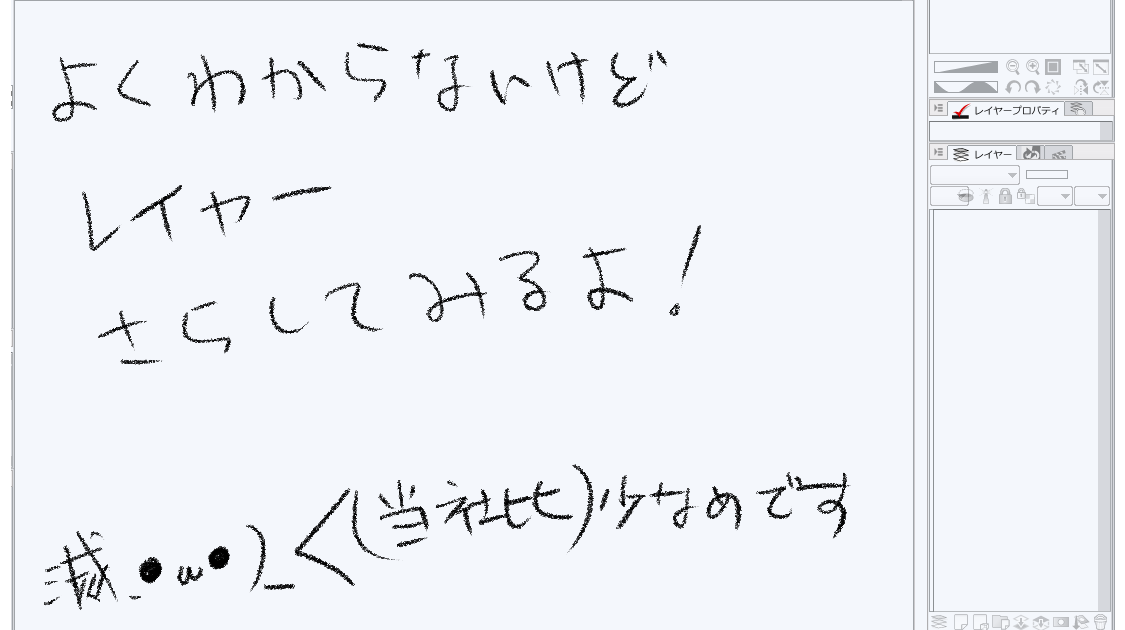 よくわからないけど
レイヤー
さらしてみるよ!
滅●ω●)_<(当社比)少なめです
レイヤープロパティ
レイヤー